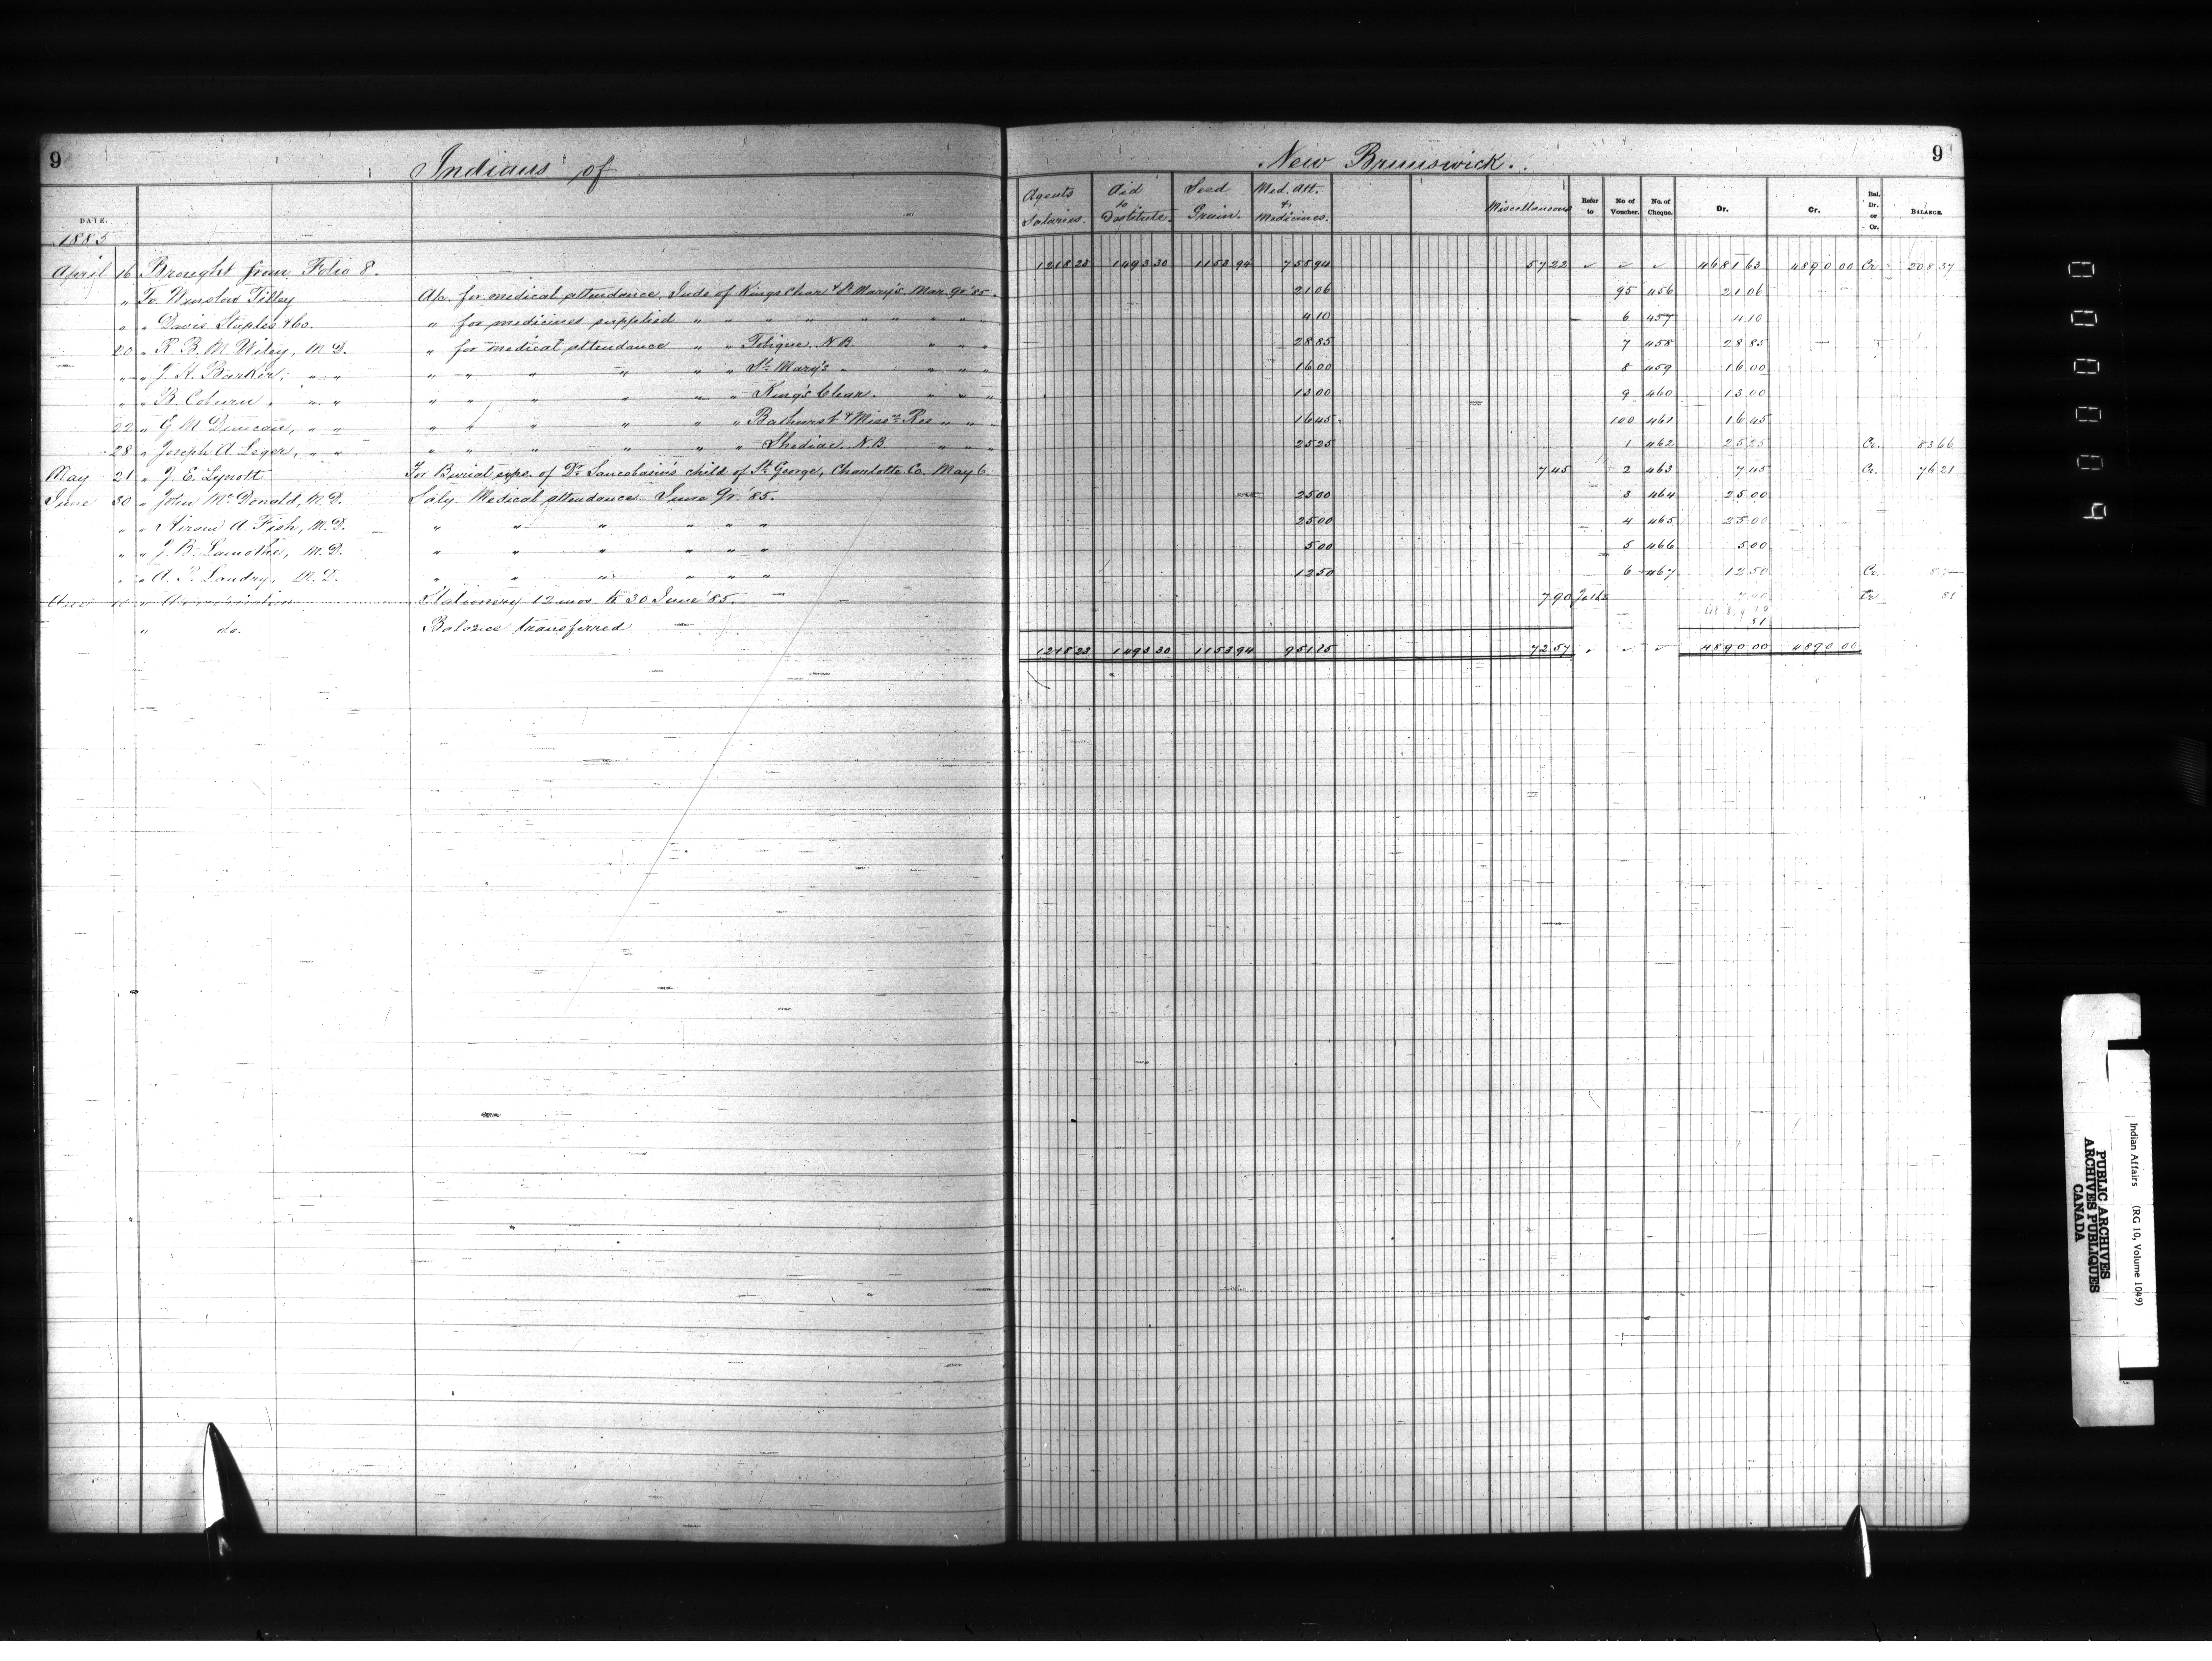 9 Indians of New Brunswick. 9
DATE. Agents Salaries. Aid to Destitute. Seed Grain. Med. Att. & Medicines. Miscellaneous Refer to No of Voucher. No. of Cheque. Dr. Cr. Bal. Dr. or Cr. BALANCE.
1885
April 16 Brought from Folio 8. 1218 23 1493 30 1153 94 755 94 57 22 ✓ ✓ ✓ 4681 63 4890 00 Cr. 208 37
" To Winslow Tilley A/c. for medical attendance Inds of Kingsclear & St Mary's Mar. Qr '85. 21 06 95 456 21 06
" " Davis Staples & Co. " for medicines supplied " " " " " " " " 4 10 6 457 4 10
20 " R. B. M. Wiley, M.D. " for medical attendance " " Tobique N.B. " " " 28 85 7 458 28 85
" " J. H. Barker, " " " " " " " " St Mary's " " " " 16 00 8 459 16 00
" " R. Coburn, " " " " " " " " Kings Clear. " " " 13 00 9 460 13 00
22 " G M Duncan, " " " " " " " " Bathurst & Res " " " 16 45 100 461 16 45
28 " Joseph A Leger, " " " " " " " " Shediac N.B. " " " 25 25 1 462 25 25 Cr. 83 66
May 21 " J. E. Lynott For Burial exps. of child of St George, Charlotte Co. May 6 7 45 2 463 7 45 Cr. 76 21
June 30 " John McDonald, M.D. Saly. Medical attendance June Qr. '85. 25 00 3 464 25 00
" " Hiram A. Fish, M.D. " " " " " " 25 00 4 465 25 00
" " J. B. Lamothe, M.D. " " " " " " 5 00 5 466 5 00
" " A. P. Landry, M.D. " " " " " " 12 50 6 467 12 50 Cr. 8 71
Stationery 12 mos. to 30 June '85. 7 90 7 90 Cr. 81
" do. Balance transferred 81
1218 23 1493 30 1153 94 951 15 72 57 ✓ ✓ ✓ 4890 00 4890 00
Indian Affairs (RG 10, Volume 1049)
PUBLIC ARCHIVES
ARCHIVES PUBLIQUES
CANADA